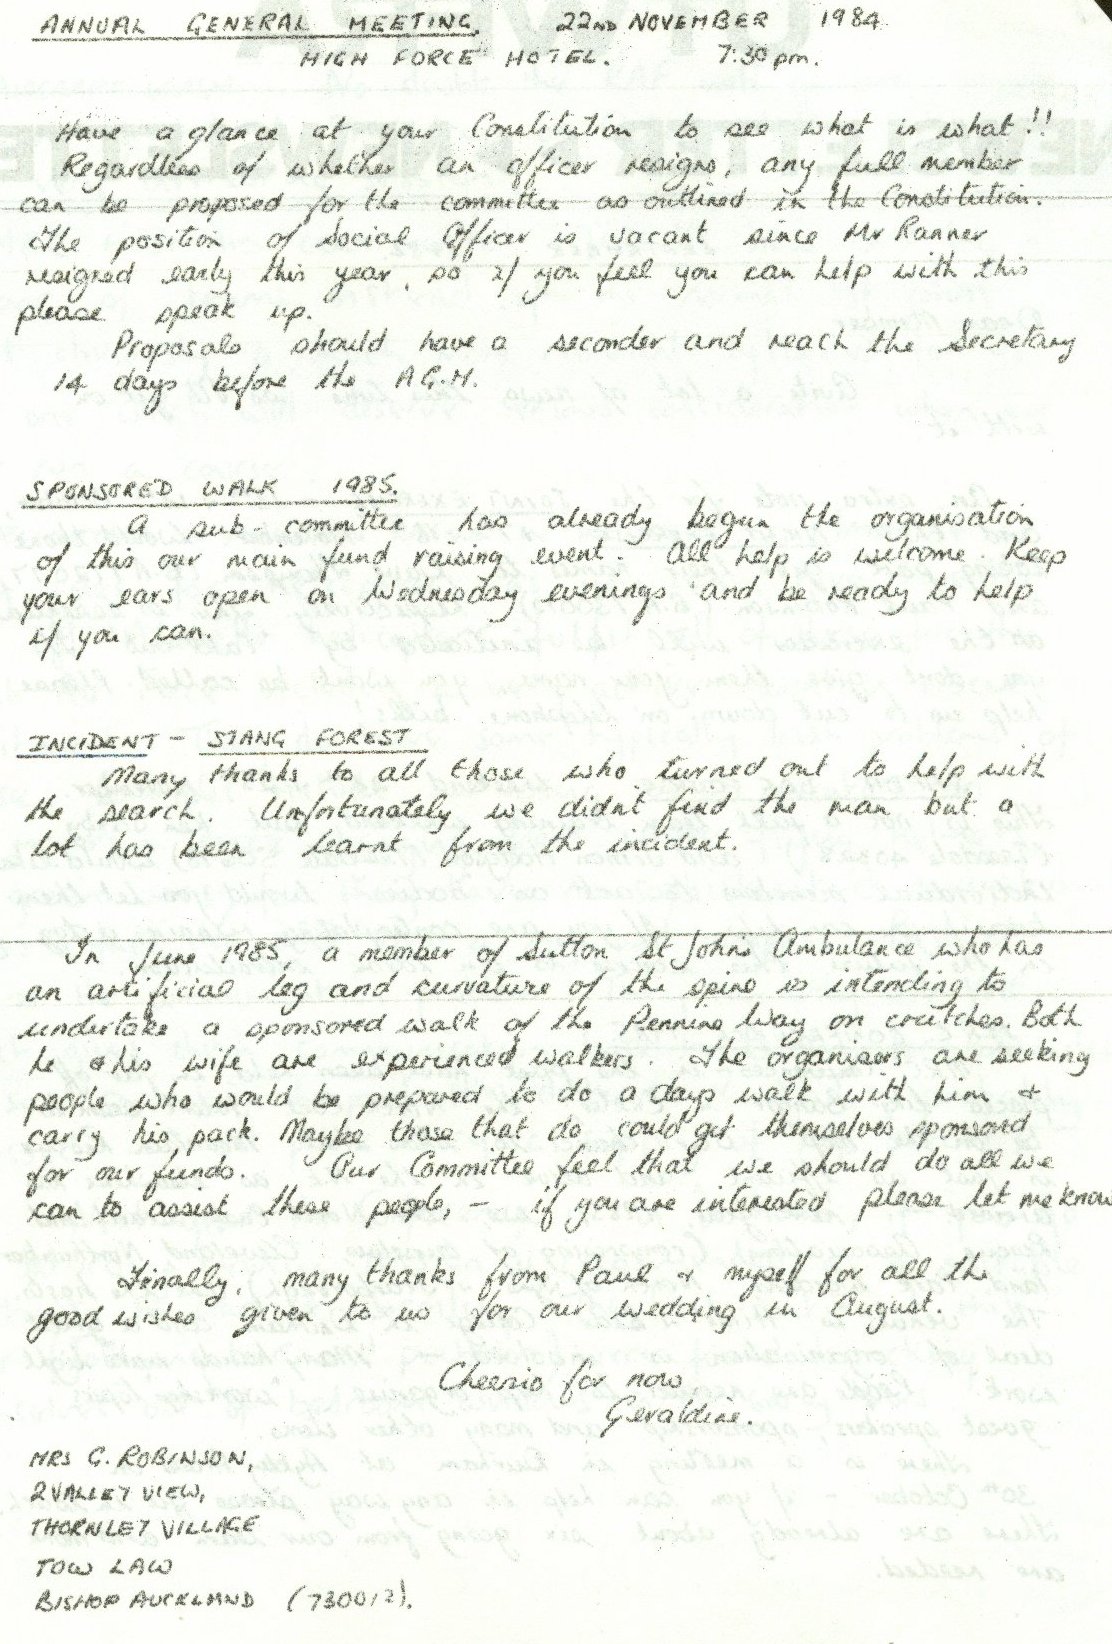 ANNUAL GENERAL MEETING. 22ND NOVEMBER 1984
HIGH FORCE HOTEL. 7:30 pm.
Have a glance at your Constitution to see what is what!!
Regardless of whether an officer resigns, any full member
can be proposed for the committee as outlined in the Constitution.
The position of Social Officer is vacant since Mr Ranner
resigned early this year, so if you feel you can help with this
please speak up.
Proposals should have a seconder and reach the Secretary
14 days before the A.G.M.
SPONSORED WALK 1985.
A sub-committee has already begun the organisation
of this our main fund raising event. All help is welcome. Keep
your ears open on Wednesday evenings and be ready to help
if you can.
INCIDENT - STANG FOREST
Many thanks to all those who turned out to help with
the search. Unfortunately we didn't find the man but a
lot has been learnt from the incident.
In June 1985, a member of Sutton St John's Ambulance who has
an artificial leg and curvature of the spine is intending to
undertake a sponsored walk of the Pennine Way on crutches. Both
he & his wife are experienced walkers. The organisers are seeking
people who would be prepared to do a days walk with him &
carry his pack. Maybe those that do could get themselves sponsored
for our funds. Our Committee feel that we should do all we
can to assist these people, - if you are interested please let me know
Finally, many thanks from Paul & myself for all the
good wishes given to us for our wedding in August.
Cheerio for now
Geraldine.
MRS G. ROBINSON,
2 VALLEY VIEW,
THORNLEY VILLAGE
TOW LAW
BISHOP AUCKLAND (730012).